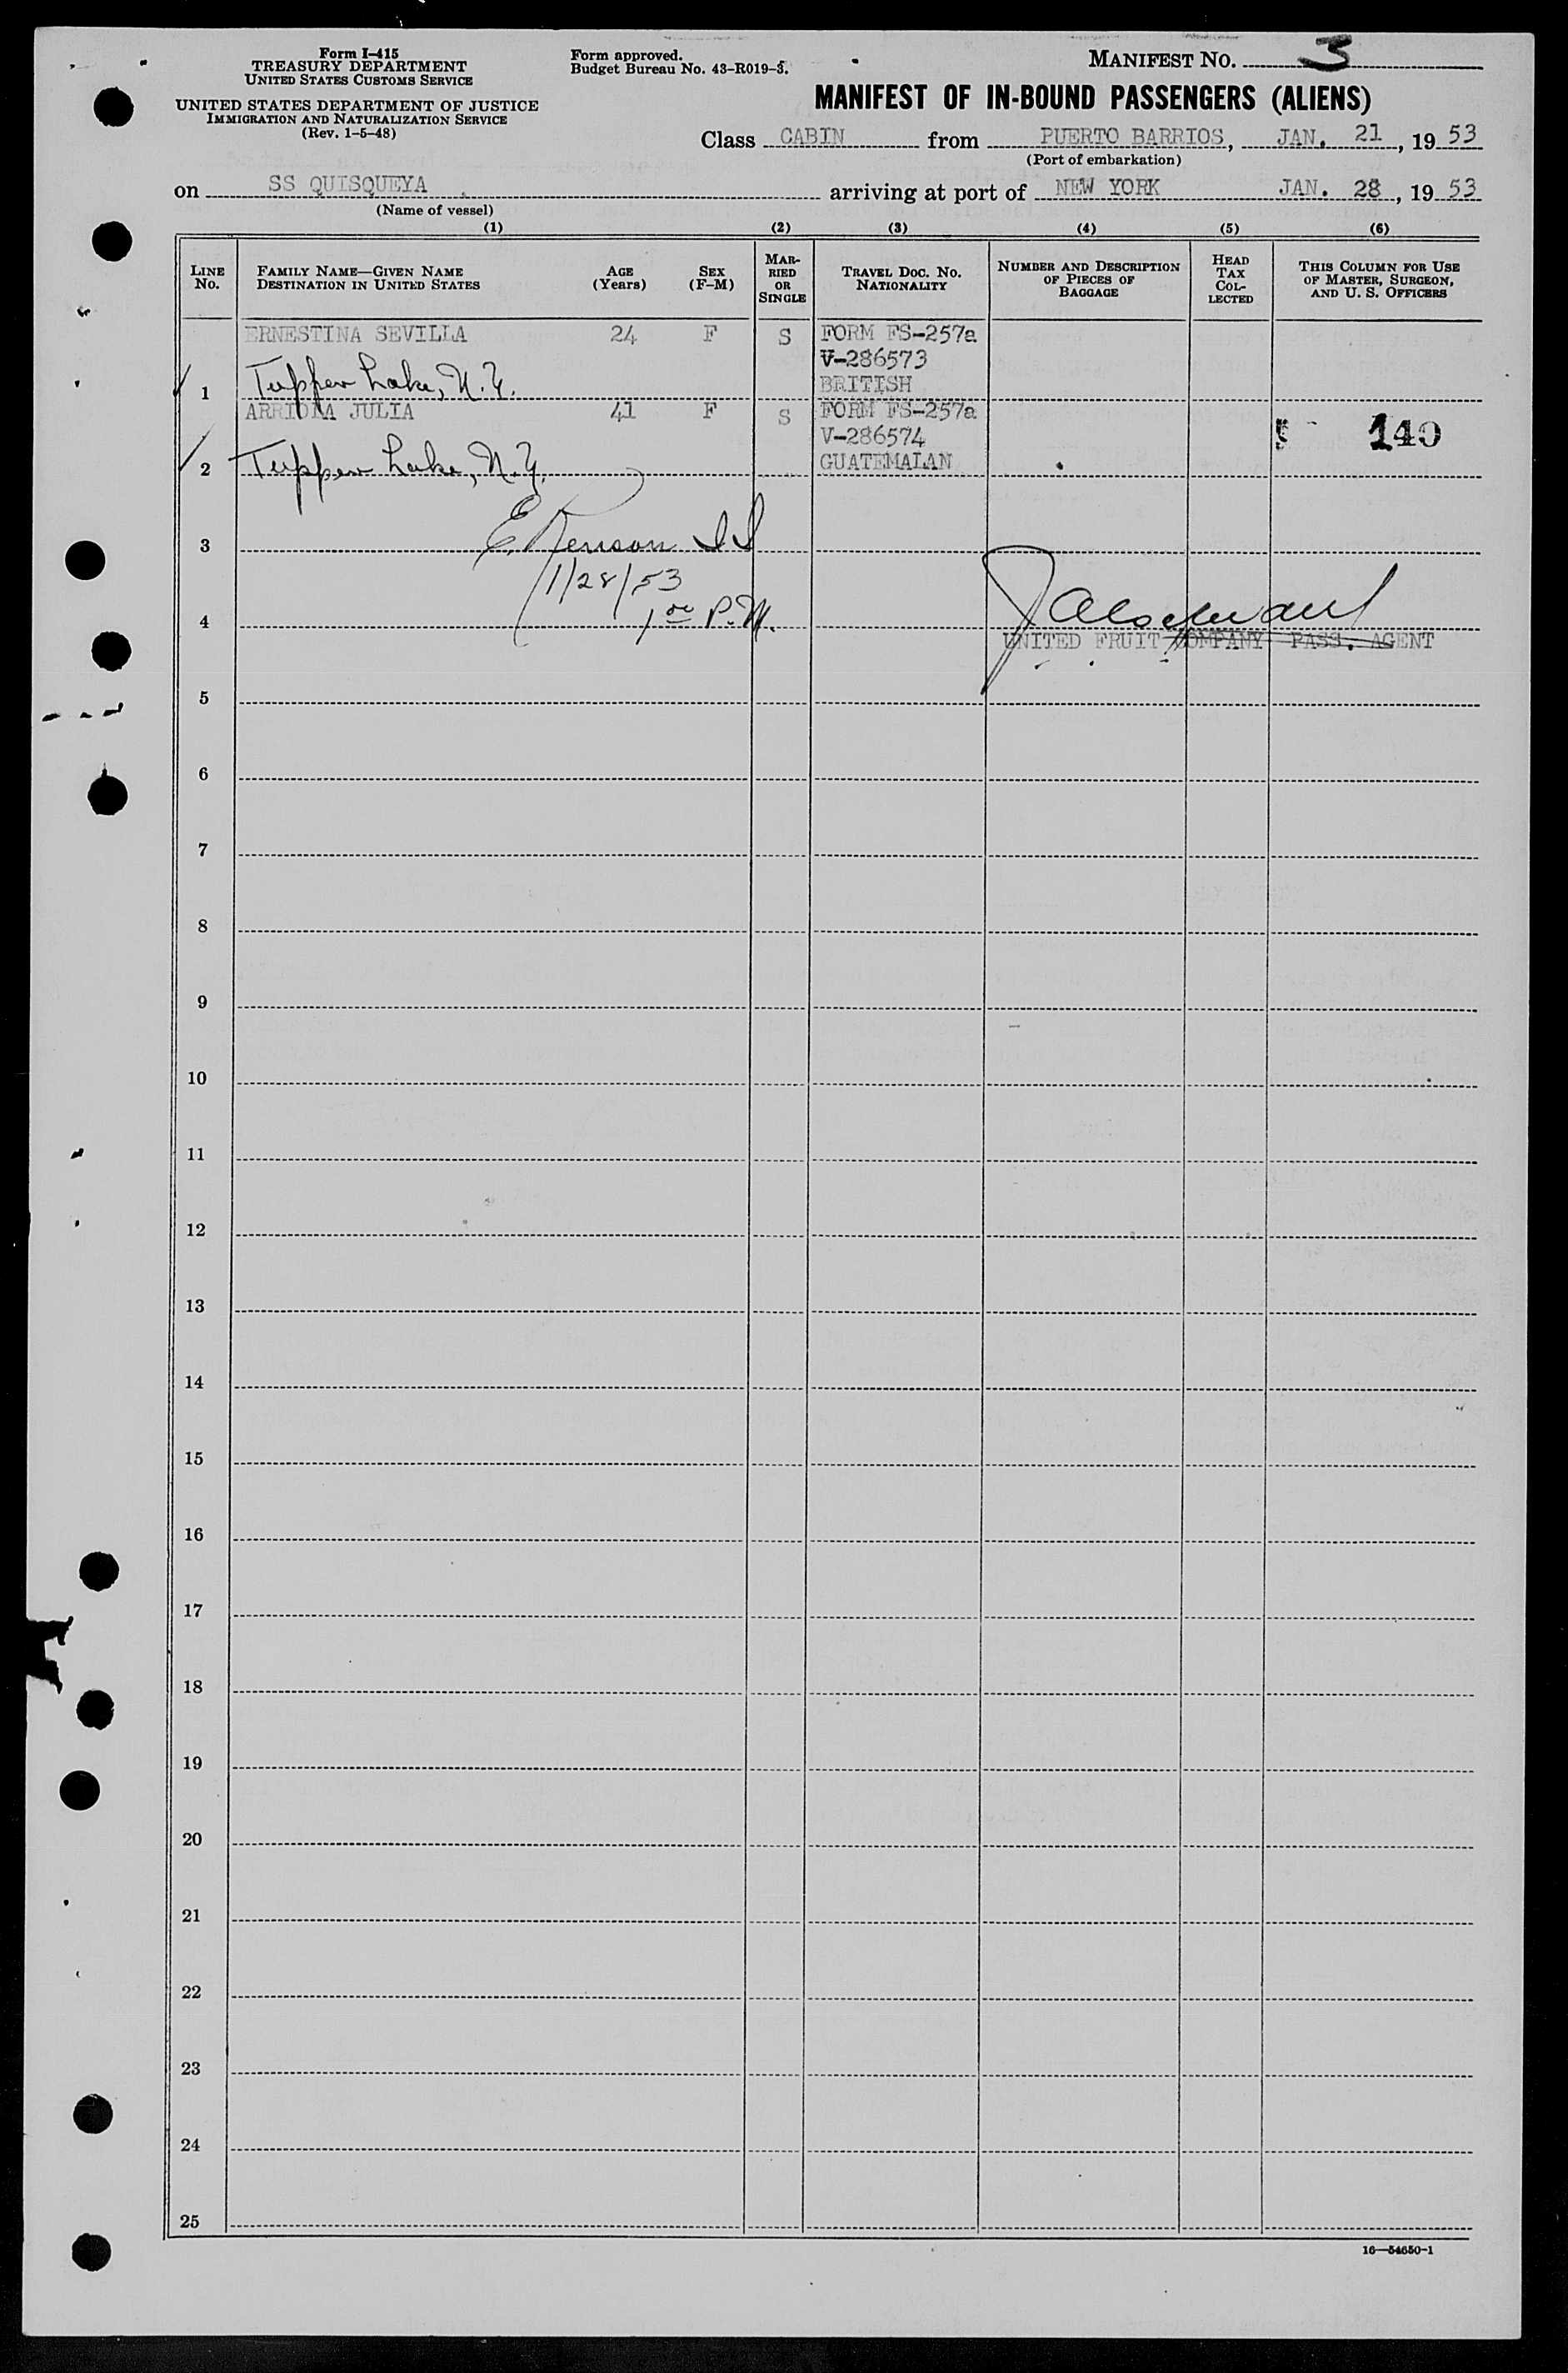 Form I-415
TREASURY DEPARTMENT
UNITED STATES CUSTOMS SERVICE
UNITED STATES DEPARTMENT OF JUSTICE
IMMIGRATION AND NATURALIZATION SERVICE
(Rev. 1-5-48)
Form approved.
Budget Bureau No. 43-R019-3.
MANIFEST NO. 3
MANIFEST OF IN-BOUND PASSENGERS (ALIENS)
Class CABIN from PUERTO BARRIOS, JAN. 21, 1953
(Port of embarkation)
on SS QUISQUEYA arriving at port of NEW YORK JAN. 28, 1953
(Name of vessel)
(1) (2) (3) (4) (5) (6)
LINE No. FAMILY NAME—GIVEN NAME DESTINATION IN UNITED STATES AGE (Years) SEX (F-M) MARRIED OR SINGLE TRAVEL DOC. NO. NATIONALITY NUMBER AND DESCRIPTION OF PIECES OF BAGGAGE HEAD TAX COLLECTED THIS COLUMN FOR USE OF MASTER, SURGEON, AND U. S. OFFICERS
ERNESTINA SEVILLA 24 F S FORM FS-257a
V-286573
1 Tupper Lake, N.Y. BRITISH
ARRIOLA JULIA 41 F S FORM FS-257a
V-286574 140
2 Tupper Lake, N.Y. GUATEMALAN
3 E.
1/28/53
4 1 00 P.M.
UNITED FRUIT COMPANY PASS. AGENT
5
6
7
8
9
10
11
12
13
14
15
16
17
18
19
20
21
22
23
24
25
16—54650-1